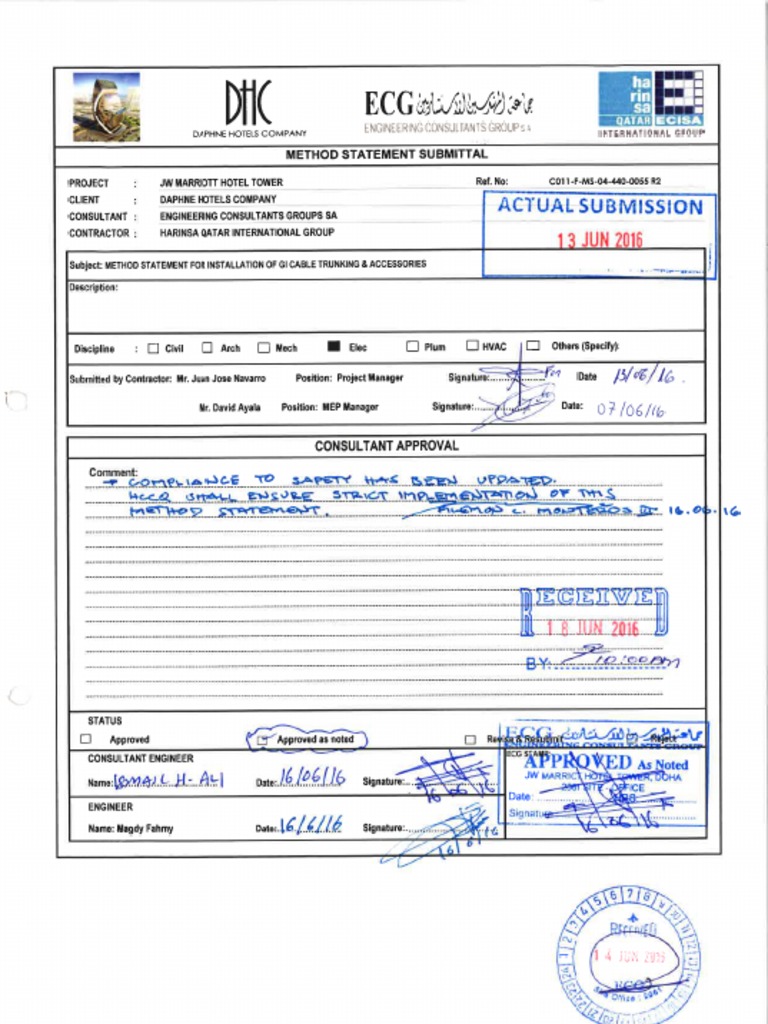 DHC ECG جماعة المهندسين الاستشاريين harinsa QATAR ECISA
DAPHNE HOTELS COMPANY ENGINEERING CONSULTANTS GROUP S.A INTERNATIONAL GROUP
METHOD STATEMENT SUBMITTAL
PROJECT : JW MARRIOTT HOTEL TOWER Ref. No: C011-F-MS-04-440-0055 R2
CLIENT : DAPHNE HOTELS COMPANY
CONSULTANT : ENGINEERING CONSULTANTS GROUPS SA
CONTRACTOR : HARINSA QATAR INTERNATIONAL GROUP
ACTUAL SUBMISSION
13 JUN 2016
Subject: METHOD STATEMENT FOR INSTALLATION OF GI CABLE TRUNKING & ACCESSORIES
Description:
Discipline : Civil Arch Mech Elec Plum HVAC Others (Specify):
Submitted by Contractor: Mr. Juan Jose Navarro Position: Project Manager Signature: Date 13/06/16.
Mr. David Ayala Position: MEP Manager Signature: Date: 07/06/16
CONSULTANT APPROVAL
Comment:
→ COMPLIANCE TO SAFETY HAS BEEN UPDATED.
HCCQ SHALL ENSURE STRICT IMPLEMENTATION OF THIS
METHOD STATEMENT. 16.06.16
RECEIVED
18 JUN 2016
BY: 10:00AM
STATUS
Approved Approved as noted Revise & Resubmit Reject
CONSULTANT ENGINEER
Name: ISMAIL H. ALI Date: 16/06/16 Signature: 16/06/16
ENGINEER
Name: Magdy Fahmy Date: 16/6/16 Signature: 16/6/16
ECG STAMP
ECG جماعة المهندسين الاستشاريين
ENGINEERING CONSULTANTS GROUP
APPROVED As Noted
JW MARRIOT HOTEL TOWER, DOHA
SITE OFFICE
Date:
Signature: 16/06/16
RECEIVED
14 JUN 2016
ECG
Site Office